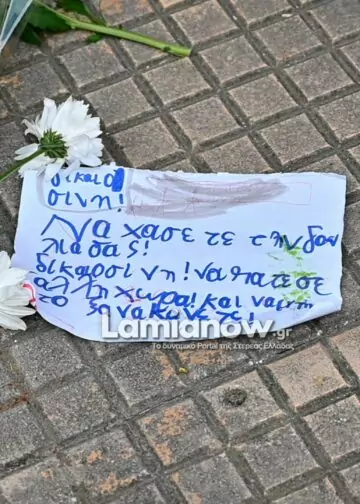 δικαιο
σινη!
Να χασε τε τηνδου
λια σας!
δικαιοσινη! να πατε σε
αλλη χωρα! και να μη
το ξανακανετε!
Lamianow.gr
Το δυναμικό Portal της Στερεάς Ελλάδας